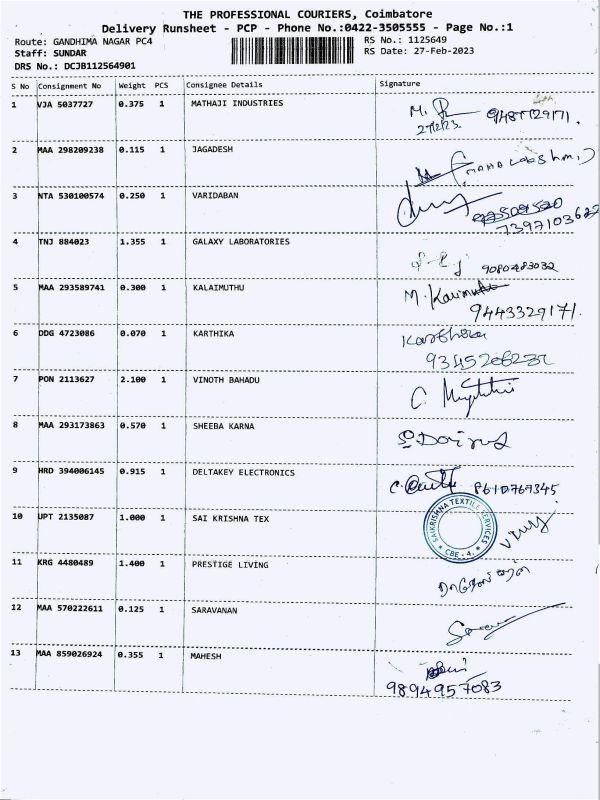 THE PROFESSIONAL COURIERS, Coimbatore
Delivery Runsheet - PCP - Phone No.:0422-3505555 - Page No.:1
Route: GANDHIMA NAGAR PC4
RS No.: 1125649
Staff: SUNDAR
RS Date: 27-Feb-2023
DRS No.: DCJB112564901
S No Consignment No Weight PCS Consignee Details Signature
1 VJA 5037727 0.375 1 MATHAJI INDUSTRIES
2 MAA 298209238 0.115 1 JAGADESH
3 NTA 530100574 0.250 1 VARIDABAN
7397103622
4 TNJ 884023 1.355 1 GALAXY LABORATORIES
9080483032
5 MAA 293589741 0.300 1 KALAIMUTHU M. Kalimuthu
9443329171.
6 DDG 4723086 0.070 1 KARTHIKA Karthika
7 PON 2113627 2.100 1 VINOTH BAHADU
8 MAA 293173863 0.570 1 SHEEBA KARNA
9 HRD 394006145 0.915 1 DELTAKEY ELECTRONICS 8610769345
10 UPT 2135087 1.000 1 SAI KRISHNA TEX
SAIKRISHNA TEXTILE SERVICES
* CBE - 4. *
11 KRG 4480489 1.400 1 PRESTIGE LIVING
12 MAA 570222611 0.125 1 SARAVANAN
13 MAA 859026924 0.355 1 MAHESH
9894957083